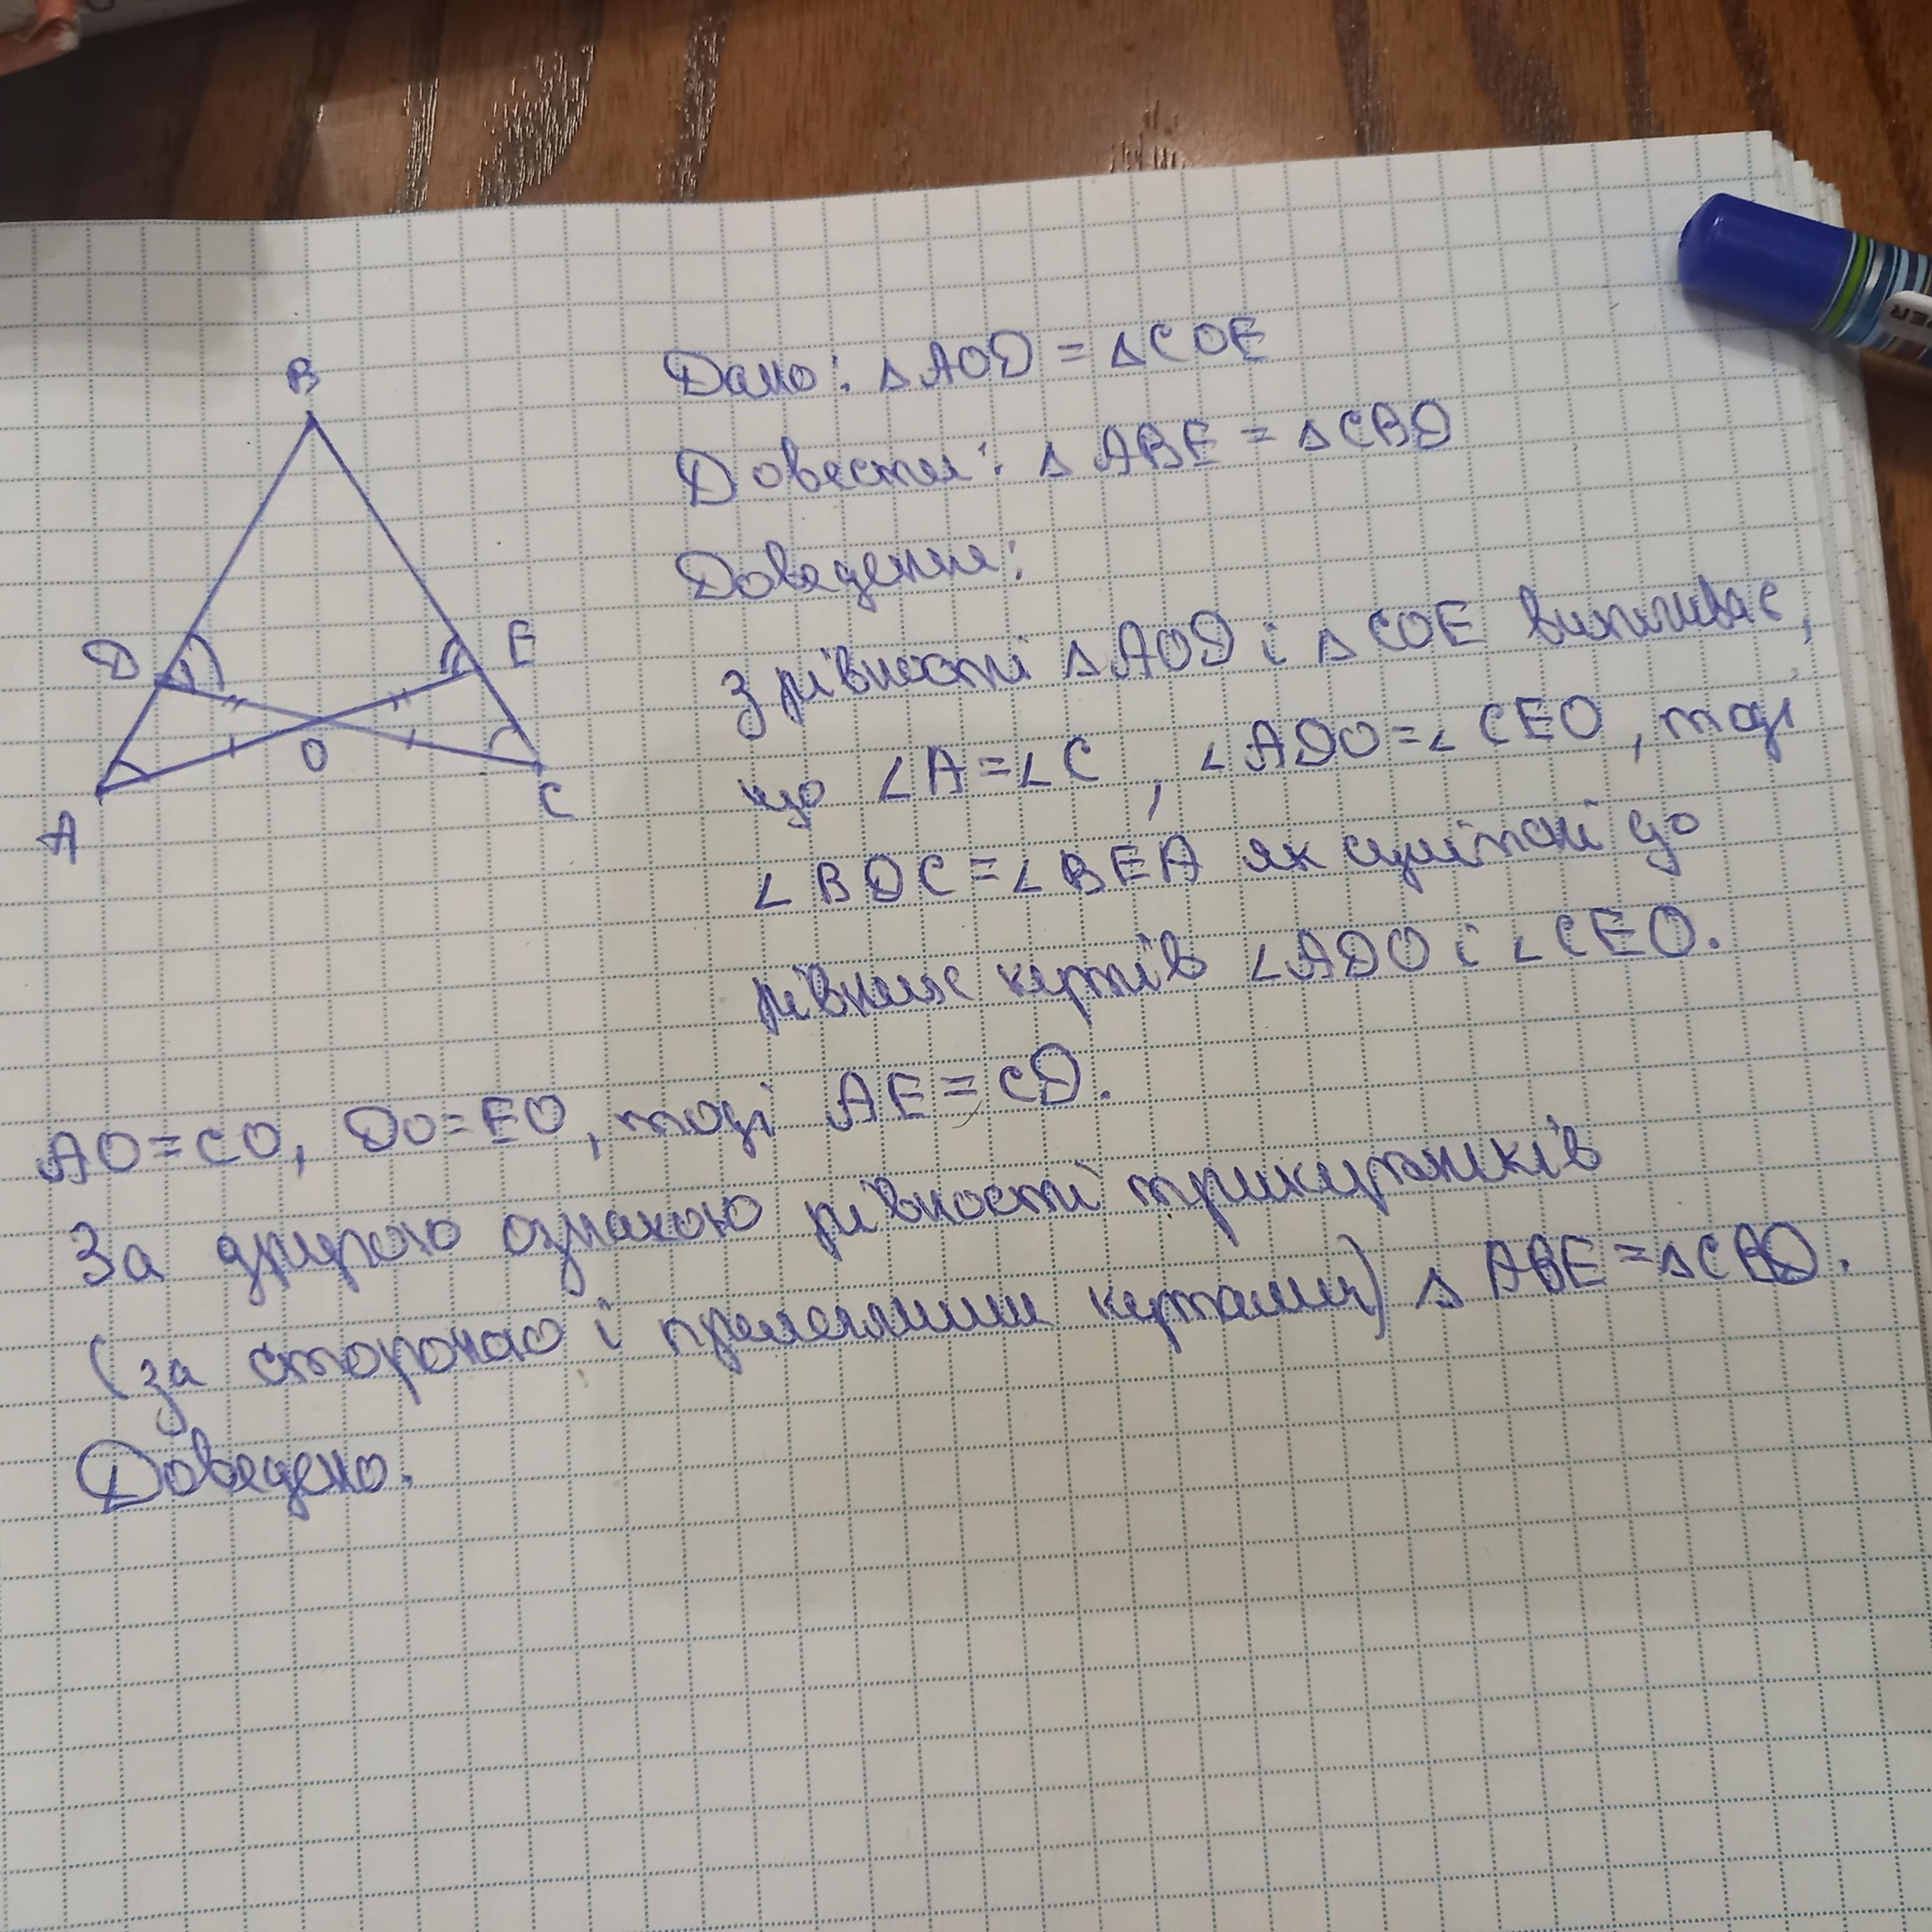 B
D
E
O
A
C
Дано: △AOD = △COE
Довести: △ABE = △CBD
Доведення:
З рівності △AOD і △COE випливає,
що ∠A=∠C, ∠ADO=∠CEO, тоді
∠BDC=∠BEA як суміжні до
рівних кутів ∠ADO і ∠CEO.
AO=CO, DO=EO, тоді AE=CD.
За другою ознакою рівності трикутників
(за стороною і прилеглими кутами) △ABE=△CBD.
Доведено.